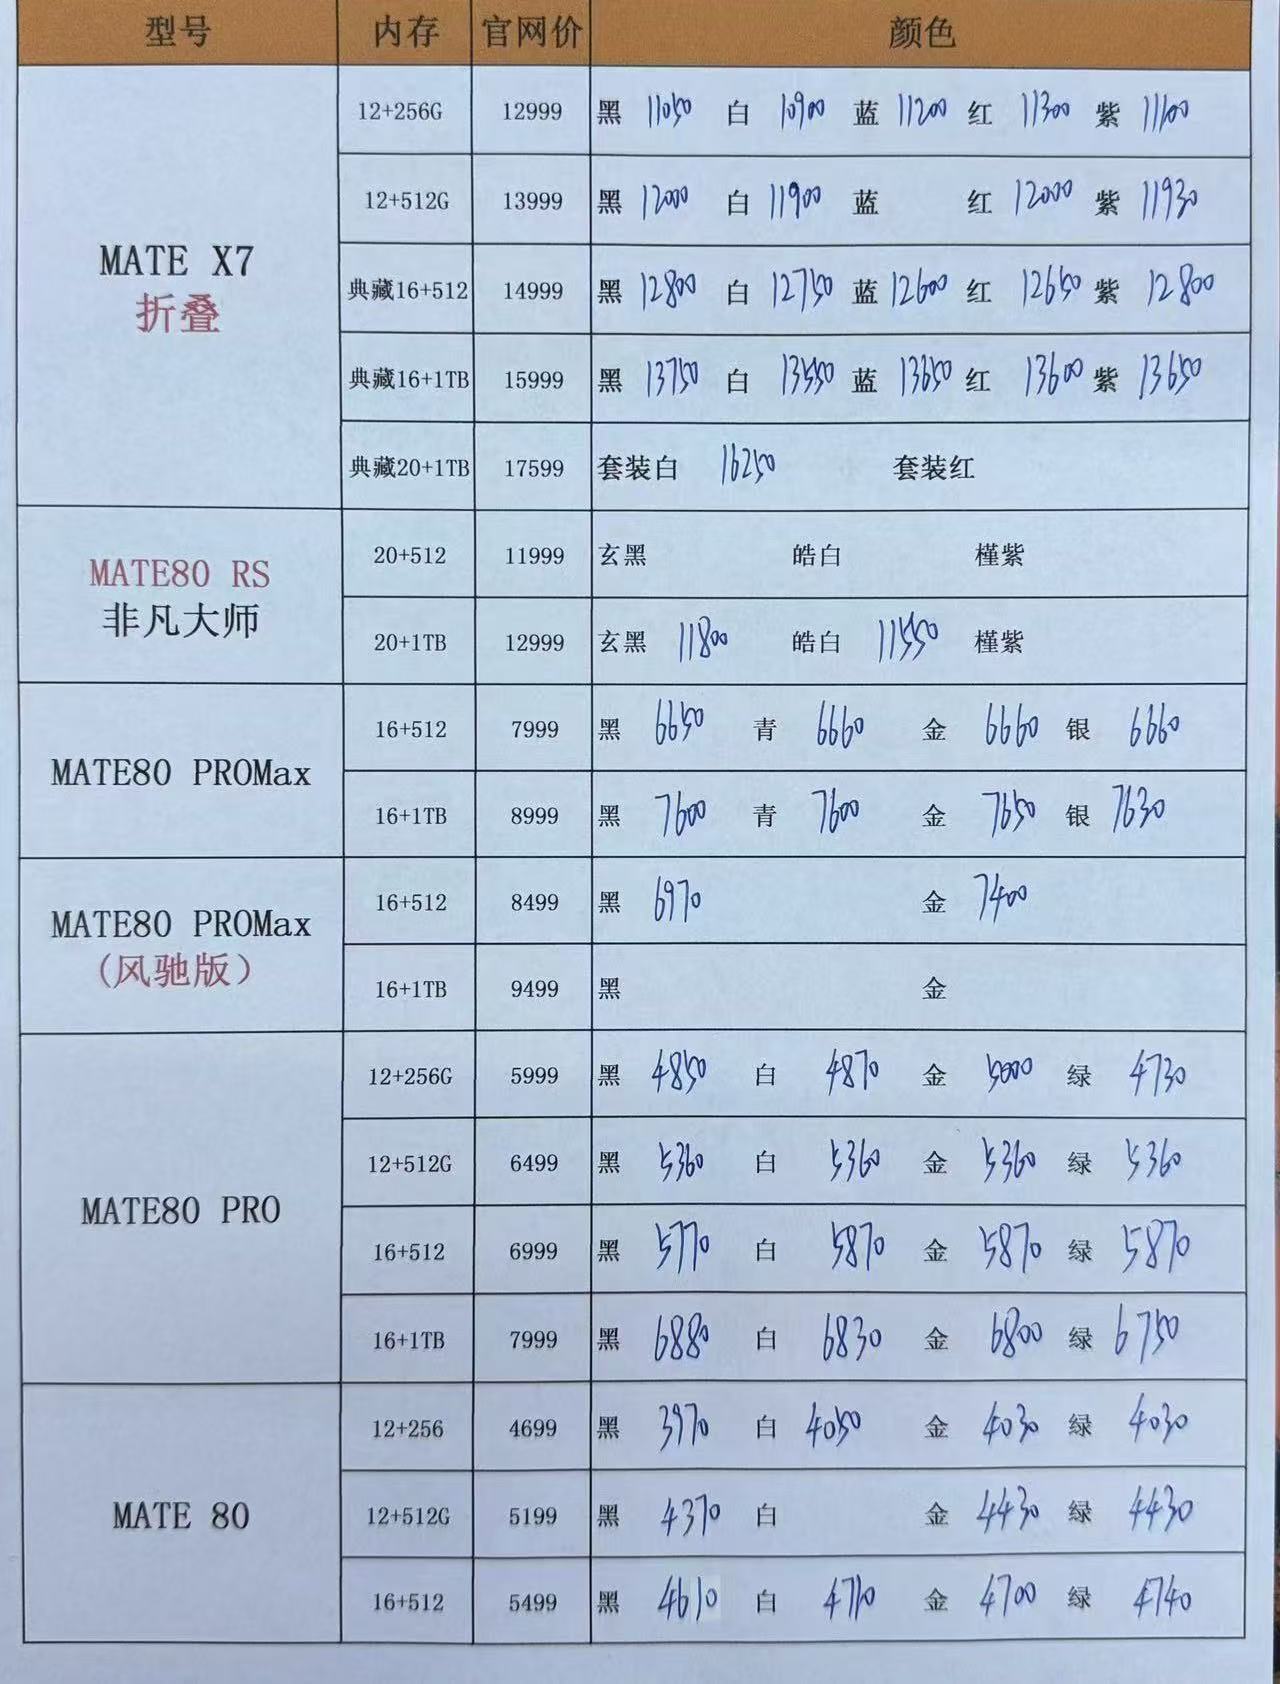 型号 内存 官网价 颜色
MATE X7
折叠
12+256G 12999 黑 11050 白 10900 蓝 11200 红 11300 紫 11100
12+512G 13999 黑 12000 白 11900 蓝 红 12000 紫 11930
典藏16+512 14999 黑 12800 白 12750 蓝 12600 红 12650 紫 12800
典藏16+1TB 15999 黑 13750 白 13550 蓝 13650 红 13600 紫 13650
典藏20+1TB 17599 套装白 16250 套装红
MATE80 RS
非凡大师
20+512 11999 玄黑 皓白 槿紫
20+1TB 12999 玄黑 11800 皓白 11550 槿紫
MATE80 PROMax
16+512 7999 黑 6650 青 6660 金 6660 银 6660
16+1TB 8999 黑 7600 青 7600 金 7650 银 7630
MATE80 PROMax
(风驰版)
16+512 8499 黑 6970 金 7400
16+1TB 9499 黑 金
MATE80 PRO
12+256G 5999 黑 4850 白 4870 金 5000 绿 4730
12+512G 6499 黑 5360 白 5360 金 5360 绿 5360
16+512 6999 黑 5770 白 5870 金 5870 绿 5870
16+1TB 7999 黑 6880 白 6830 金 6800 绿 6750
MATE 80
12+256 4699 黑 3970 白 4050 金 4030 绿 4030
12+512G 5199 黑 4370 白 金 4430 绿 4430
16+512 5499 黑 4610 白 4710 金 4700 绿 4740